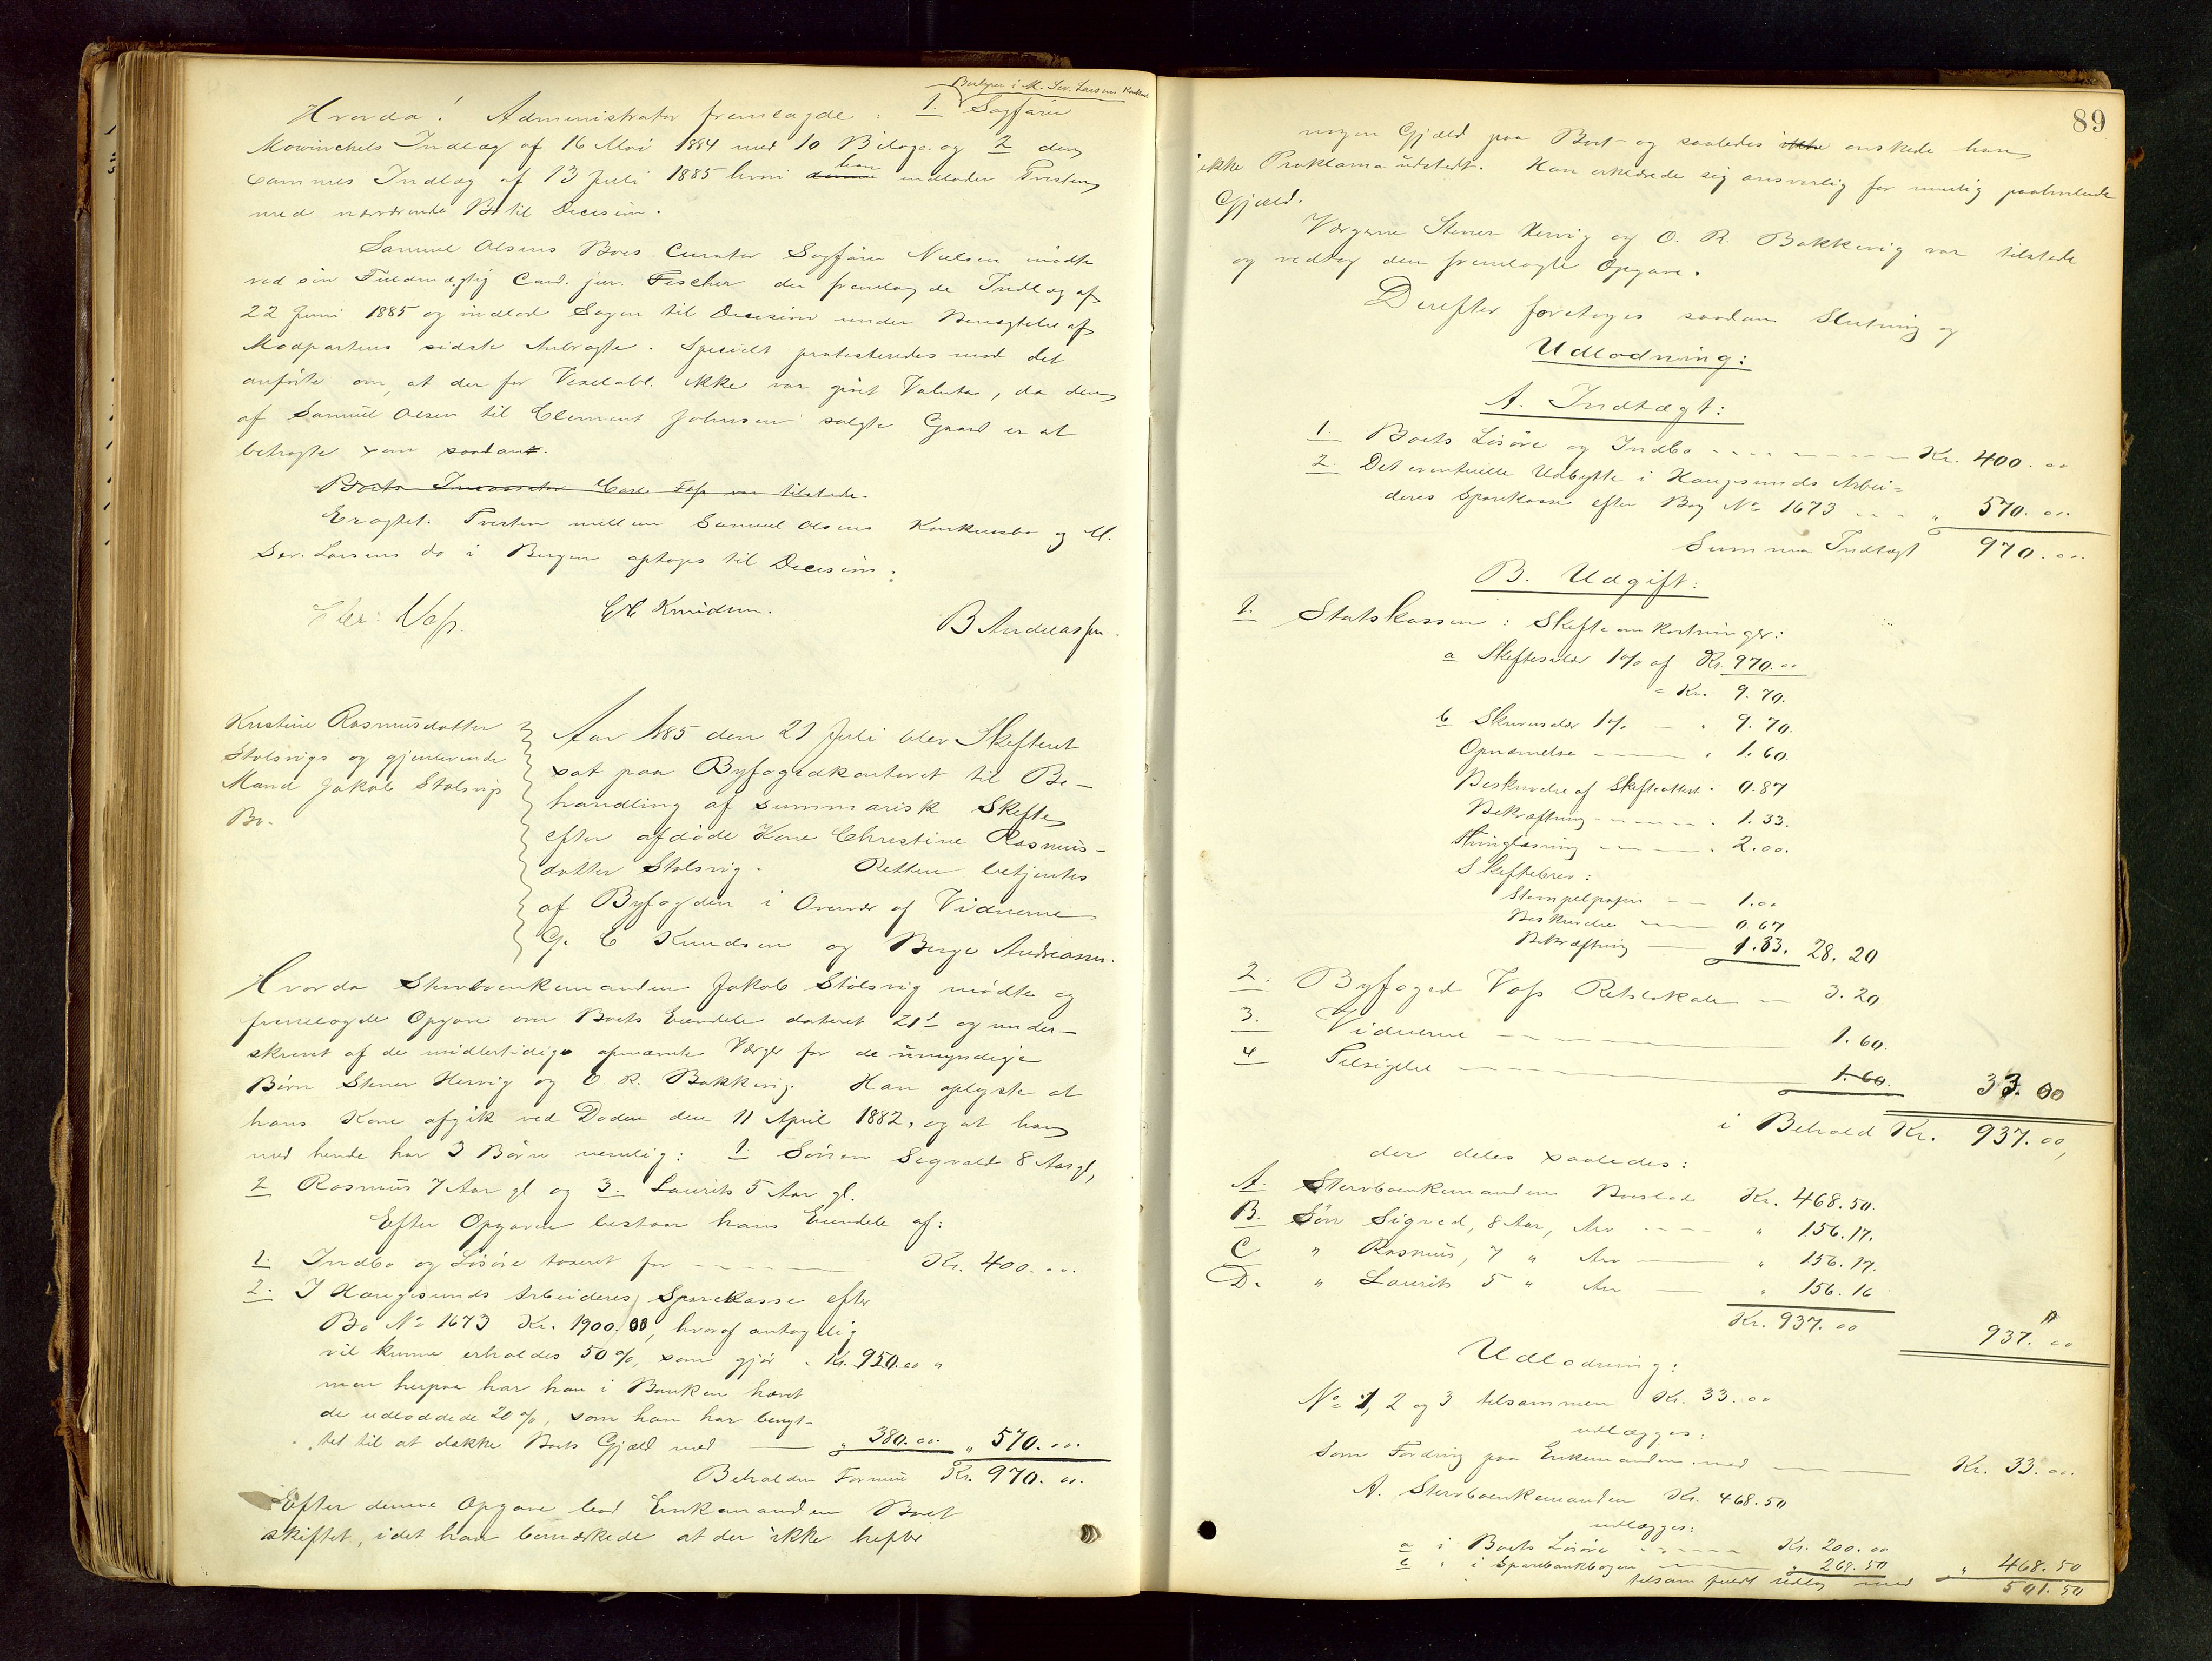 Bestyrer i M. Sev. Larsens Konkurs
Hvorda! Administrator fremlagde: 1. Sagfører
Mowinckels Indlæg af 16 Mai 1884 med 10 Bilage og 2 den
sammes Indlæg af 13 Juli 1885 hvori denne han indlader Tvisten
med nærværende Bo til Decision.
Samuel Olsens Boes Curator Sagfører Nielsen mødte
ved sin Fuldmægtig Cand. jur. Fischer der fremlagde Indlæg af
22 Juni 1885 og indlod Sagen til Decision under Benægtelse af
Modpartens sidste Anbragte. Specielt protesteredes mod det
anførte om, at der for Vexelobl. ikke var givet Valuta, da den
af Samuel Olsen til Clement Johnsen solgte Gaard er at
betragte som saadant.
Boets Incassator Carl Foss var tilstede.
Eragtet: Tvisten mellem Samuel Olsens Konkursbo og M.
Sev. Larsens do i Bergen optages til Decision.
Chr: Voss. G C Knudsen. B Andreassen.
Kristine Rasmusdatter
Stolsvigs og gjenlevende
Mand Jakob Stolsvigs
Bo.
Aar 1885 den 21 Juli blev Skifteret
sat paa Byfogedkontoret til Be-
handling af summarisk Skifte
efter afdøde Kone Christine Rasmus-
datter Stolsvig. Retten betjentes
af Byfogden i Overvær af Vidnerne
G. C Knudsen og Berge Andreassen.
Hvorda Stervboenkemanden Jakob Stolsvig mødte og
fremlagde Opgave over Boets Eiendele dateret 21de og under-
skrevet af de midlertidige opnævnte Værger for de umyndige
Børn Stener Hervig og O. R. Bakkevig. Han oplyste at
hans Kone afgik ved Døden den 11 April 1882, og at han
med hende har 3 Børn nemlig: 1. Sønnen Sigvald 8 Aar gl,
2 Rasmus 7 Aar gl og 3. Laurits 5 Aar gl.
Efter Opgaven bestaar hans Eiendele af:
1. Indbo og Løsøre taxeret for ----- Kr. 400.00.
2. I Haugesunds Arbeideres Sparekasse efter
Bo No 1673 Kr. 1900.00, hvoraf antagelig
vil kunne erholdes 50%, som gjør " Kr. 950.00 "
men herpaa har han i Banken hævet
de udloddede 20%, som han har benyt-
tet til at dække Boets Gjæld med — " 380.00 " 570.00.
Beholden Formue Kr. 970.00.
Efter denne Opgave lod Enkemanden Boet
skiftet, idet han bemærkede at der ikke hefter
89
nogen Gjæld paa Boet og saaledes ikke ønskede han
ikke Proklama udstedt. Han erklærede sig ansvarlig for mulig paahvilende
Gjæld.
Værgerne Stener Hervig og O. R. Bakkevig var tilstede
og vedtog den fremlagte Opgave.
Derefter foretoges saadan Slutning og
Udlodning:
A. Indtægt:
1. Boets Løsøre og Indbo ------ Kr. 400.00
2. Det eventuelle Udbytte i Haugesunds Arbei=
deres Sparekasse efter Bog No 1673 --- " 570.00
Summa Indtægt 970.00.
B. Udgift:
1. Statskassen: Skifteomkostninger:
a Skiftesalær 1% af Kr. 970.00
= Kr. 9.70.
b Skriversalær 1% — " 9.70.
Opnævnelse ——— " 1.60.
Beskrivelse af Skifteattest " 0.87
Bekræftning ----- " 1.33.
Thinglæsning ——— " 2.00.
Skiftebrev:
Stempelpapir —— 1.00
Beskrivelse —— 0.67
Bekræftning —— 1.33. 28.20
2. Byfoged Voss Retslokale — 3.20
3. Vidnerne ————— 1.60.
4 Tilsigelse ————— 1.60. 33.00
i Behold Kr. 937.00,
der deles saaledes:
A. Stervboenkemandens Boeslod Kr. 468.50.
B. Søn Sigvad, 8 Aar, Arv ---- " 156.17.
C. " Rasmus, 7 " Arv —— " 156.17.
D. " Laurits 5 " Arv —— " 156.16
Kr. 937.00 937.00
Udlodning:
No 1, 2 og 3 tilsammen Kr. 33.00
udlægges:
Som Fordring paa Enkemanden med ——— Kr. 33.00.
A. Stervboenkemanden Kr. 468.50
udlægges:
a i Boets Løsøre ----- Kr. 200.00
c " i Sparebankbogen ——— " 268.50 " 468.50
tilsam fuldt Udlæg med 501.50